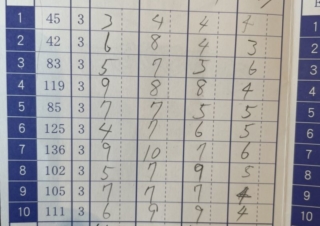 1 45 3 3 4 4 4
2 42 3 6 8 4 3
3 83 3 5 7 5 6
4 119 3 9 8 8 4
5 85 3 7 7 5 5
6 125 3 4 7 6 5
7 136 3 9 10 7 6
8 102 3 5 7 9 5
9 105 3 7 7 7 4
10 111 3 6 9 9 4
1
2
3
4
5
6
7
8
9
10